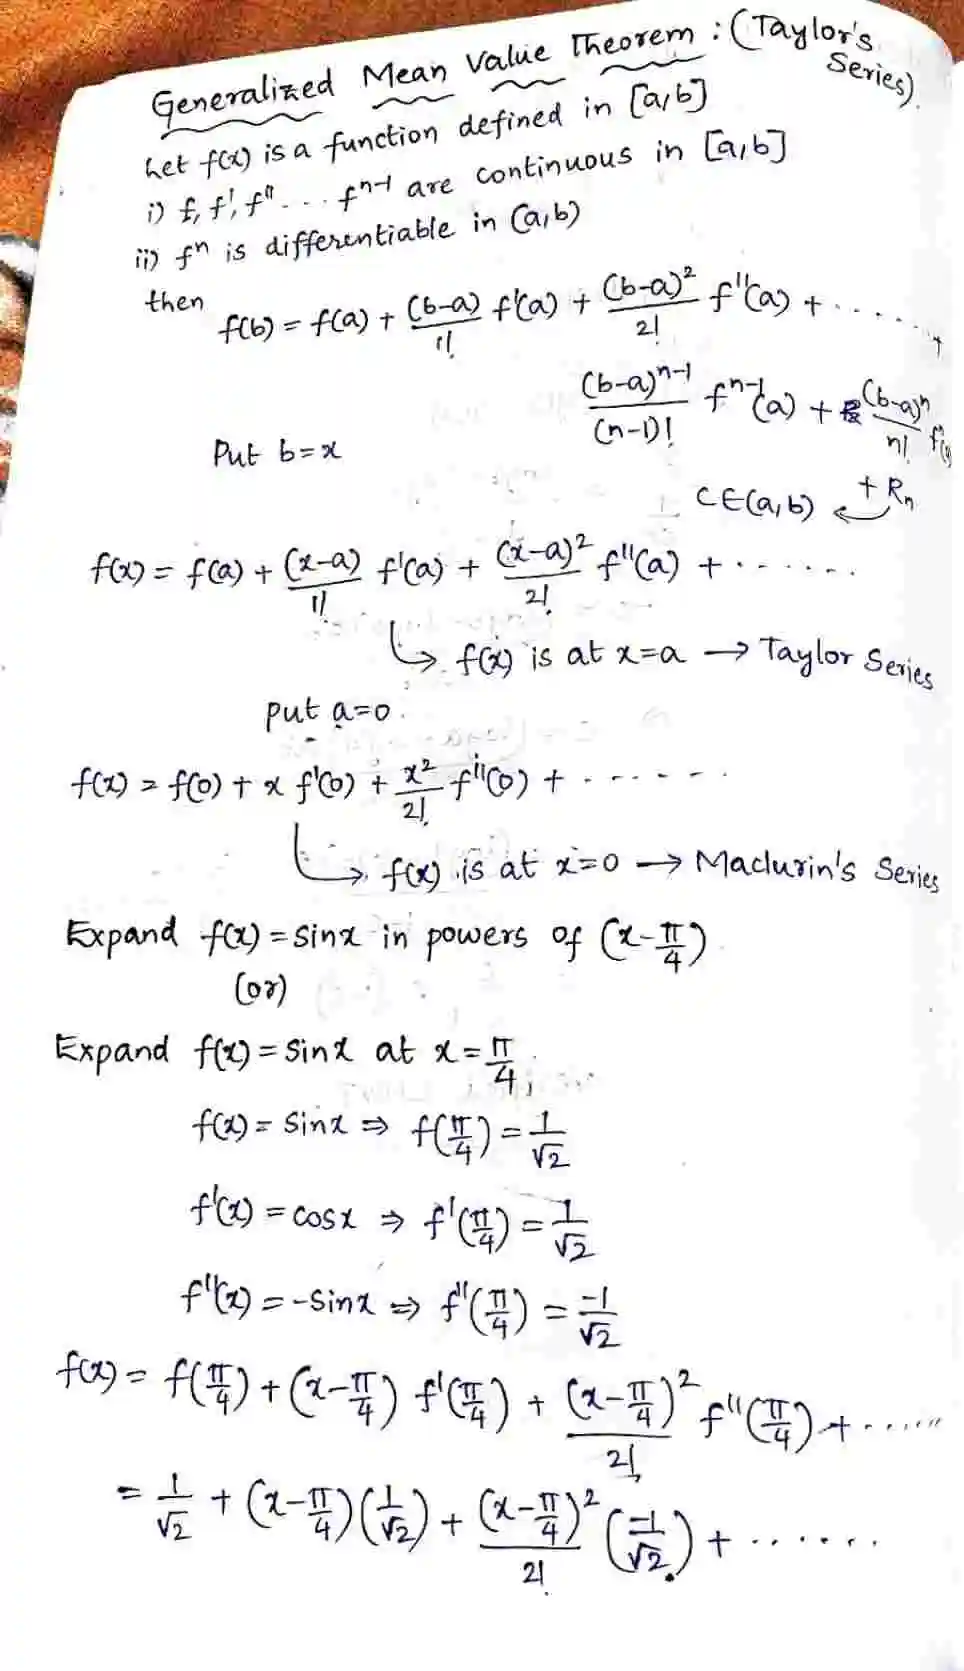 Generalized Mean Value Theorem : (Taylor's Series).
Let f(x) is a function defined in [a,b]
i) f, f', f'' ... f^n-1 are continuous in [a,b]
ii) f^n is differentiable in (a,b)
then
f(b) = f(a) + (b-a)/1! f'(a) + (b-a)²/2! f''(a) + ........ +
(b-a)^n-1/(n-1)! f^n-1(a) + (b-a)^n/n! f^n
Put b=x
C∈(a,b) + Rn
f(x) = f(a) + (x-a)/1! f'(a) + (x-a)²/2! f''(a) + .......
↳ f(x) is at x=a → Taylor Series
put a=0
f(x) = f(0) + x f'(0) + x²/2! f''(0) + .......
↳ f(x) is at x=0 → Maclurin's Series
Expand f(x) = sinx in powers of (x-π/4)
(or)
Expand f(x) = sinx at x=π/4,
f(x) = sinx ⇒ f(π/4) = 1/√2
f'(x) = cosx ⇒ f'(π/4) = 1/√2
f''(x) = -sinx ⇒ f''(π/4) = -1/√2
f(x) = f(π/4) + (x-π/4) f'(π/4) + (x-π/4)²/2! f''(π/4) + ......
= 1/√2 + (x-π/4)(1/√2) + (x-π/4)²/2! (-1/√2) + ......